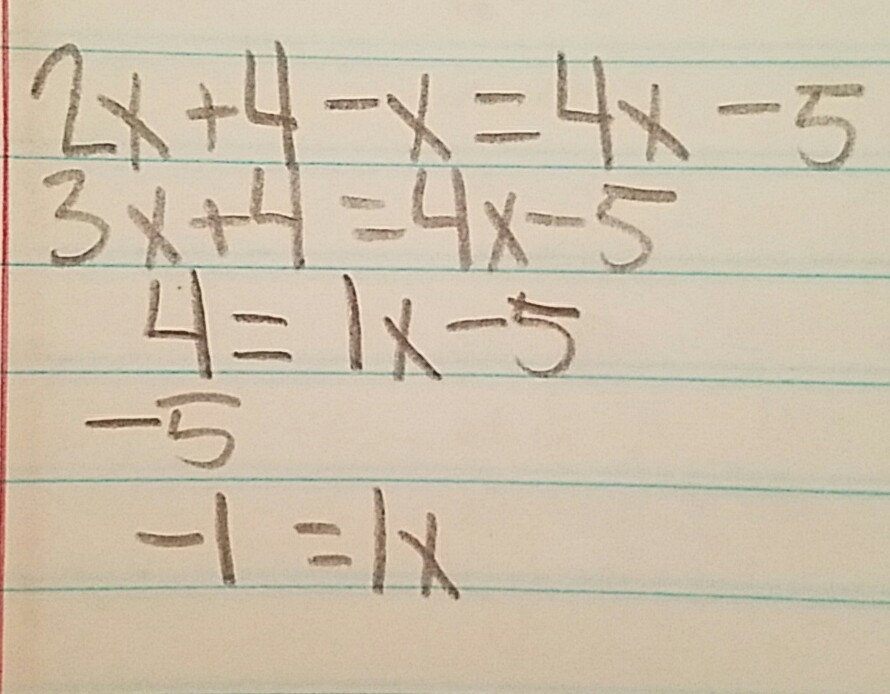 2x+4-x=4x-5
3x+4=4x-5
4=1x-5
-5
-1=1x